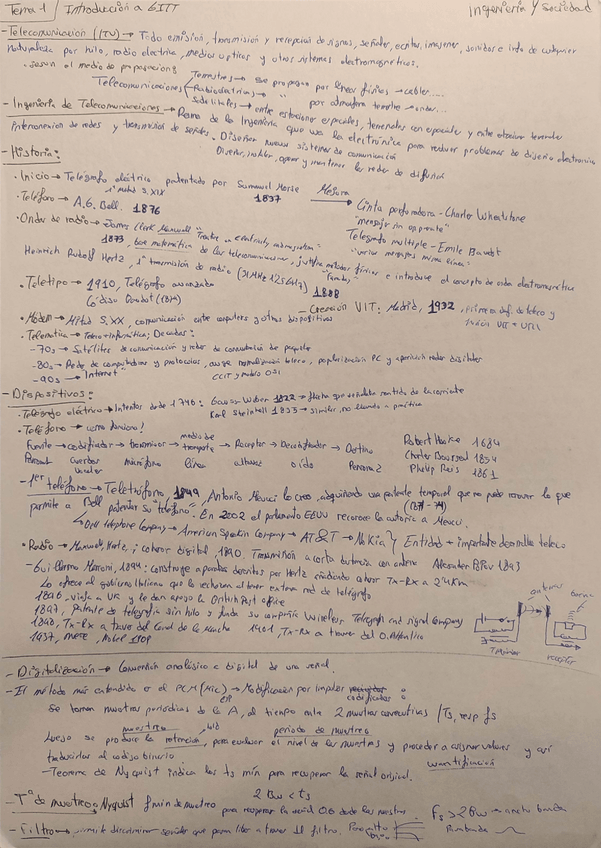 Tema 1 Introducción a GITT Ingeniería y Sociedad
- Telecomunicación (ITU) → Toda emisión, transmisión y recepción de signos, señales, escritos, imagenes, sonidos e info de cualquier
naturaleza por hilo, radio electrica, medios opticos y otros sistemas electromagneticos.
· Según el medio de propagación:
Telecomunicaciones Terrestres → Se propaga por líneas físicas → cables....
Radioeléctricas → " por atmosfera terrestre → ondas...
Satelitales → entre estaciones espaciales, terrenales con espaciales y entre estacion terrenales
- Ingeniería de Telecomunicaciones → Rama de la Ingeniería que usa la electrónica para resolver problemas de diseño electronico
interconexion de redes y transmisión de señales. Diseñar nuevos sistemas de comunicación
Diseñar, instalar, operar y mantener las redes de difusión
- Historia:
· Inicio → Telégrafo eléctrico patentado por Samuel Morse Mejora
1ª mitad S. XIX 1837 Cinta perforadora - Charles Wheatstone
· Teléfono → A.G. Bell. 1876 "mensaje sin operante"
· Ondas de radio → James Clerk Maxwell Telegrafo multiple - Emile Baudot
1873, base matematica de las telecomunicaciones, "varios mensajes misma linea"
introduce el concepto de onda electromagnetica
Heinrich Rudolf Hertz, 1ª transmisión de radio 1888
· Teletipo → 1910, Telégrafo avanzado
Código Baudot (1874) - Creación UIT: Madrid, 1932, primera def. de teleco y
· Módem → Mitad S.XX, comunicación entre computers y otros dispositivos
· Telematica → Teleco + informática; Decadas:
- 70s → Satélites de comunicación y redes de conmutación de paquete
- 80s → Redes de computadoras y protocolos, auge normalización teleco, popularización PC y aparición redes digitales
- 90s → Internet CCIT y modelo OSI
- Dispositivos:
· Telégrafo eléctrico → Intentos desde 1746: Gauss y Weber 1822 → flecha que señalaba sentido de la corriente
Karl Steinheil 1833 → similar, no llevado a práctica
· Teléfono → como funciona?
Fuente → codificador → transmisor → medio de transporte → Receptor → Decodificador → Destino Robert Hooke 1684
Persona 1 cuerdas vocales micrófono línea altavoz oido Persona 2 Charles Bourseul 1854
Philip Reis 1861
- 1er teléfono → Teletrófono, 1849, Antonio Meucci lo crea, adquiriendo una patente temporal que no pudo renovar lo que
permite a Bell patentar su "teléfono". En 2002 el parlamento EEUU reconoce la autoría a Meucci. (1871-74)
Bell telephone Company → American Speakin Company → AT&T → Nokia Entidad + importante desarrollo teleco
· Radio → Maxwell, Hertz, y cohesor digital, 1890. Transmisión a corta distancia con antena Alexander Popov 1893
- Guillermo Marconi, 1894: construye aparatos descritos por Hertz añadiendo cohesor Tx-Rx a 2'4Km
Lo ofrece al gobierno italiano que lo rechazan al tener extensa red de telégrafo
1896, viaja a UK y le dan apoyo la British Post office
1897, Patente de telegrafía sin hilo y funda su compañía Wireless Telegraph and signal Company
Tx-Rx a traves del Canal de la Mancha 1901, Tx-Rx a traves del O. Atlantico
1937, muere, Nobel 1909
antenas
Transmisor
receptor
- Digitalización → Conversión analógico a digital de una señal.
- El método más extendido es el PCM (MIC) → Modificación por impulsos codificados
Se toman muestras periodicas de la A, al tiempo entre 2 muestras consecutivas / Ts, resp fs
muestreo periodo de muestreo
Luego se produce la retención, para evaluar el nivel de las muestras y proceder a asignar valores y así
traducirlas al codigo binario cuantificación
- Teorema de Nyquist indica los ts mín para recuperar la señal original.
- Tª de muestreo Nyquist f min de muestreo 2 Bw < ts
para recuperar la señal Fs > 2Bw → ancho banda
- Filtro → permite discriminar señales que pasan libre a traves del filtro. Paso alto
Bajo Pasabanda